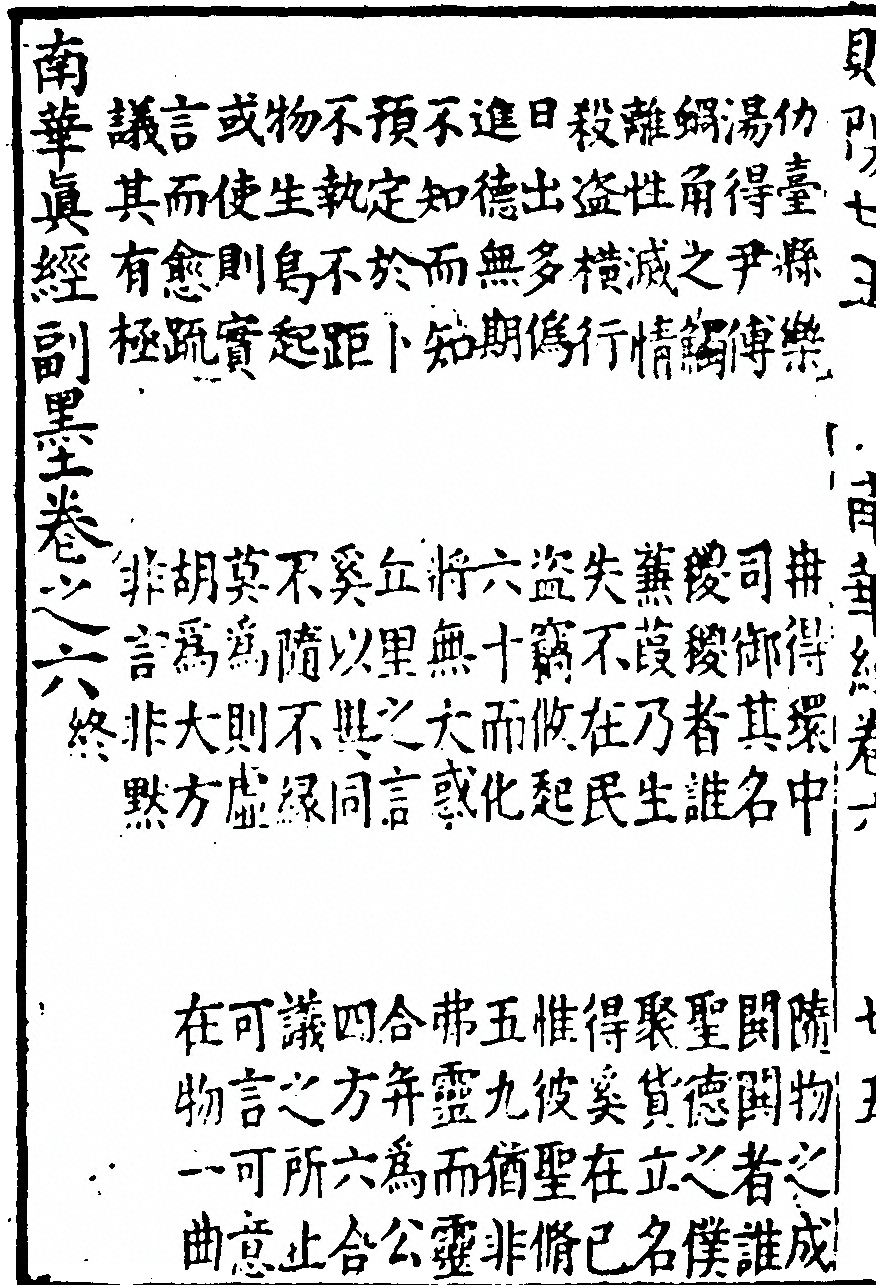 則陽七五 南華經卷六 七五
仞臺縣樂 冉得環中 隨物之成
湯得尹傅 司御其名 鬪鬪者誰
蝸角之觸 稷稷者誰 聖德之僕
離性滅情 蒹葭乃生 聚貨立名
殺盜橫行 失不在民 得奚在己
日出多偽 盜竊攸起 惟彼聖脩
進德無期 六十而化 五九猶非
不知而知 將無大惑 弗靈而靈
預定於卜 丘里之言 合并為公
不執不距 奚以與同 四方六合
物生烏起 不隨不緣 議之所止
或使則實 莫為則虛 可言可意
言而愈疏 胡為大方 在物一曲
議其有極 非言非默
南華眞經副墨卷之六終